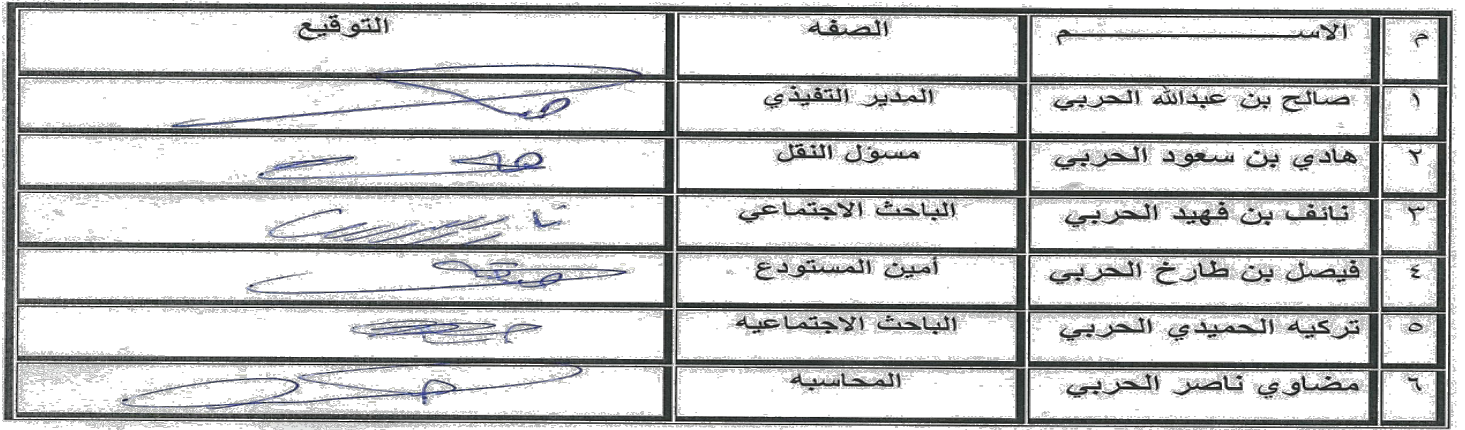 م الاســـــــــم الصفه التوقيع
١ صالح بن عبدالله الحربي المدير التفيذي
٢ هادي بن سعود الحربي مسؤل النقل
٣ نائف بن فهيد الحربي الباحث الاجتماعي
٤ فيصل بن طارخ الحربي أمين المستودع
٥ تركيه الحميدي الحربي الباحث الاجتماعيه
٦ مضاوي ناصر الحربي المحاسبه